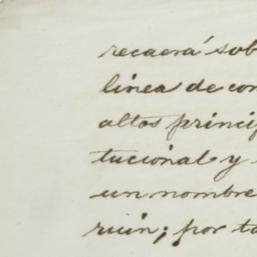 recaerá sob
línea de con
altos princip
tucional y
un nombre
ruin; por ta